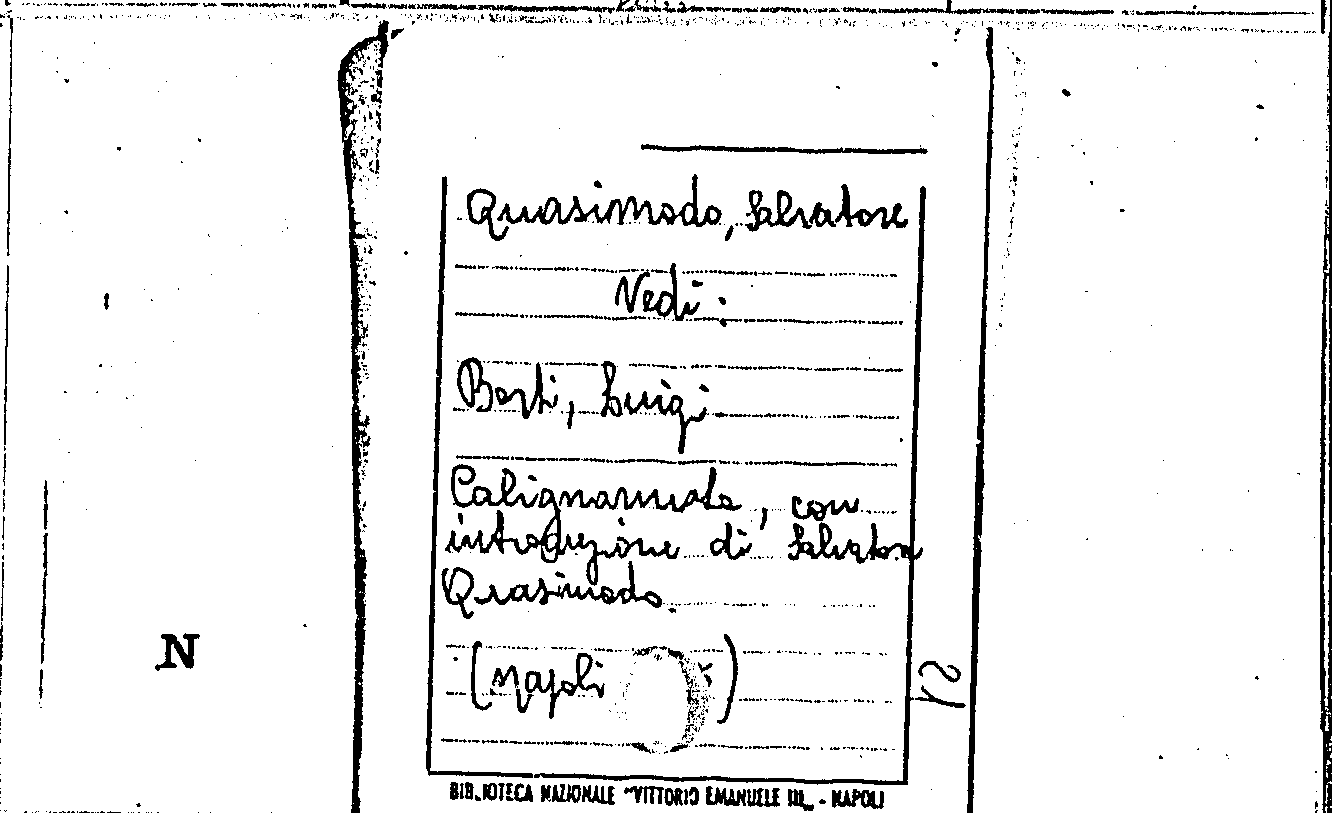 Quasimodo, Salvatore
Vedi:
Berti, Luigi
Calignarmata, con
introduzione di Salvatore
Quasimodo.
(Napoli )
21
N
BIBLIOTECA NAZIONALE "VITTORIO EMANUELE III„ - NAPOLI